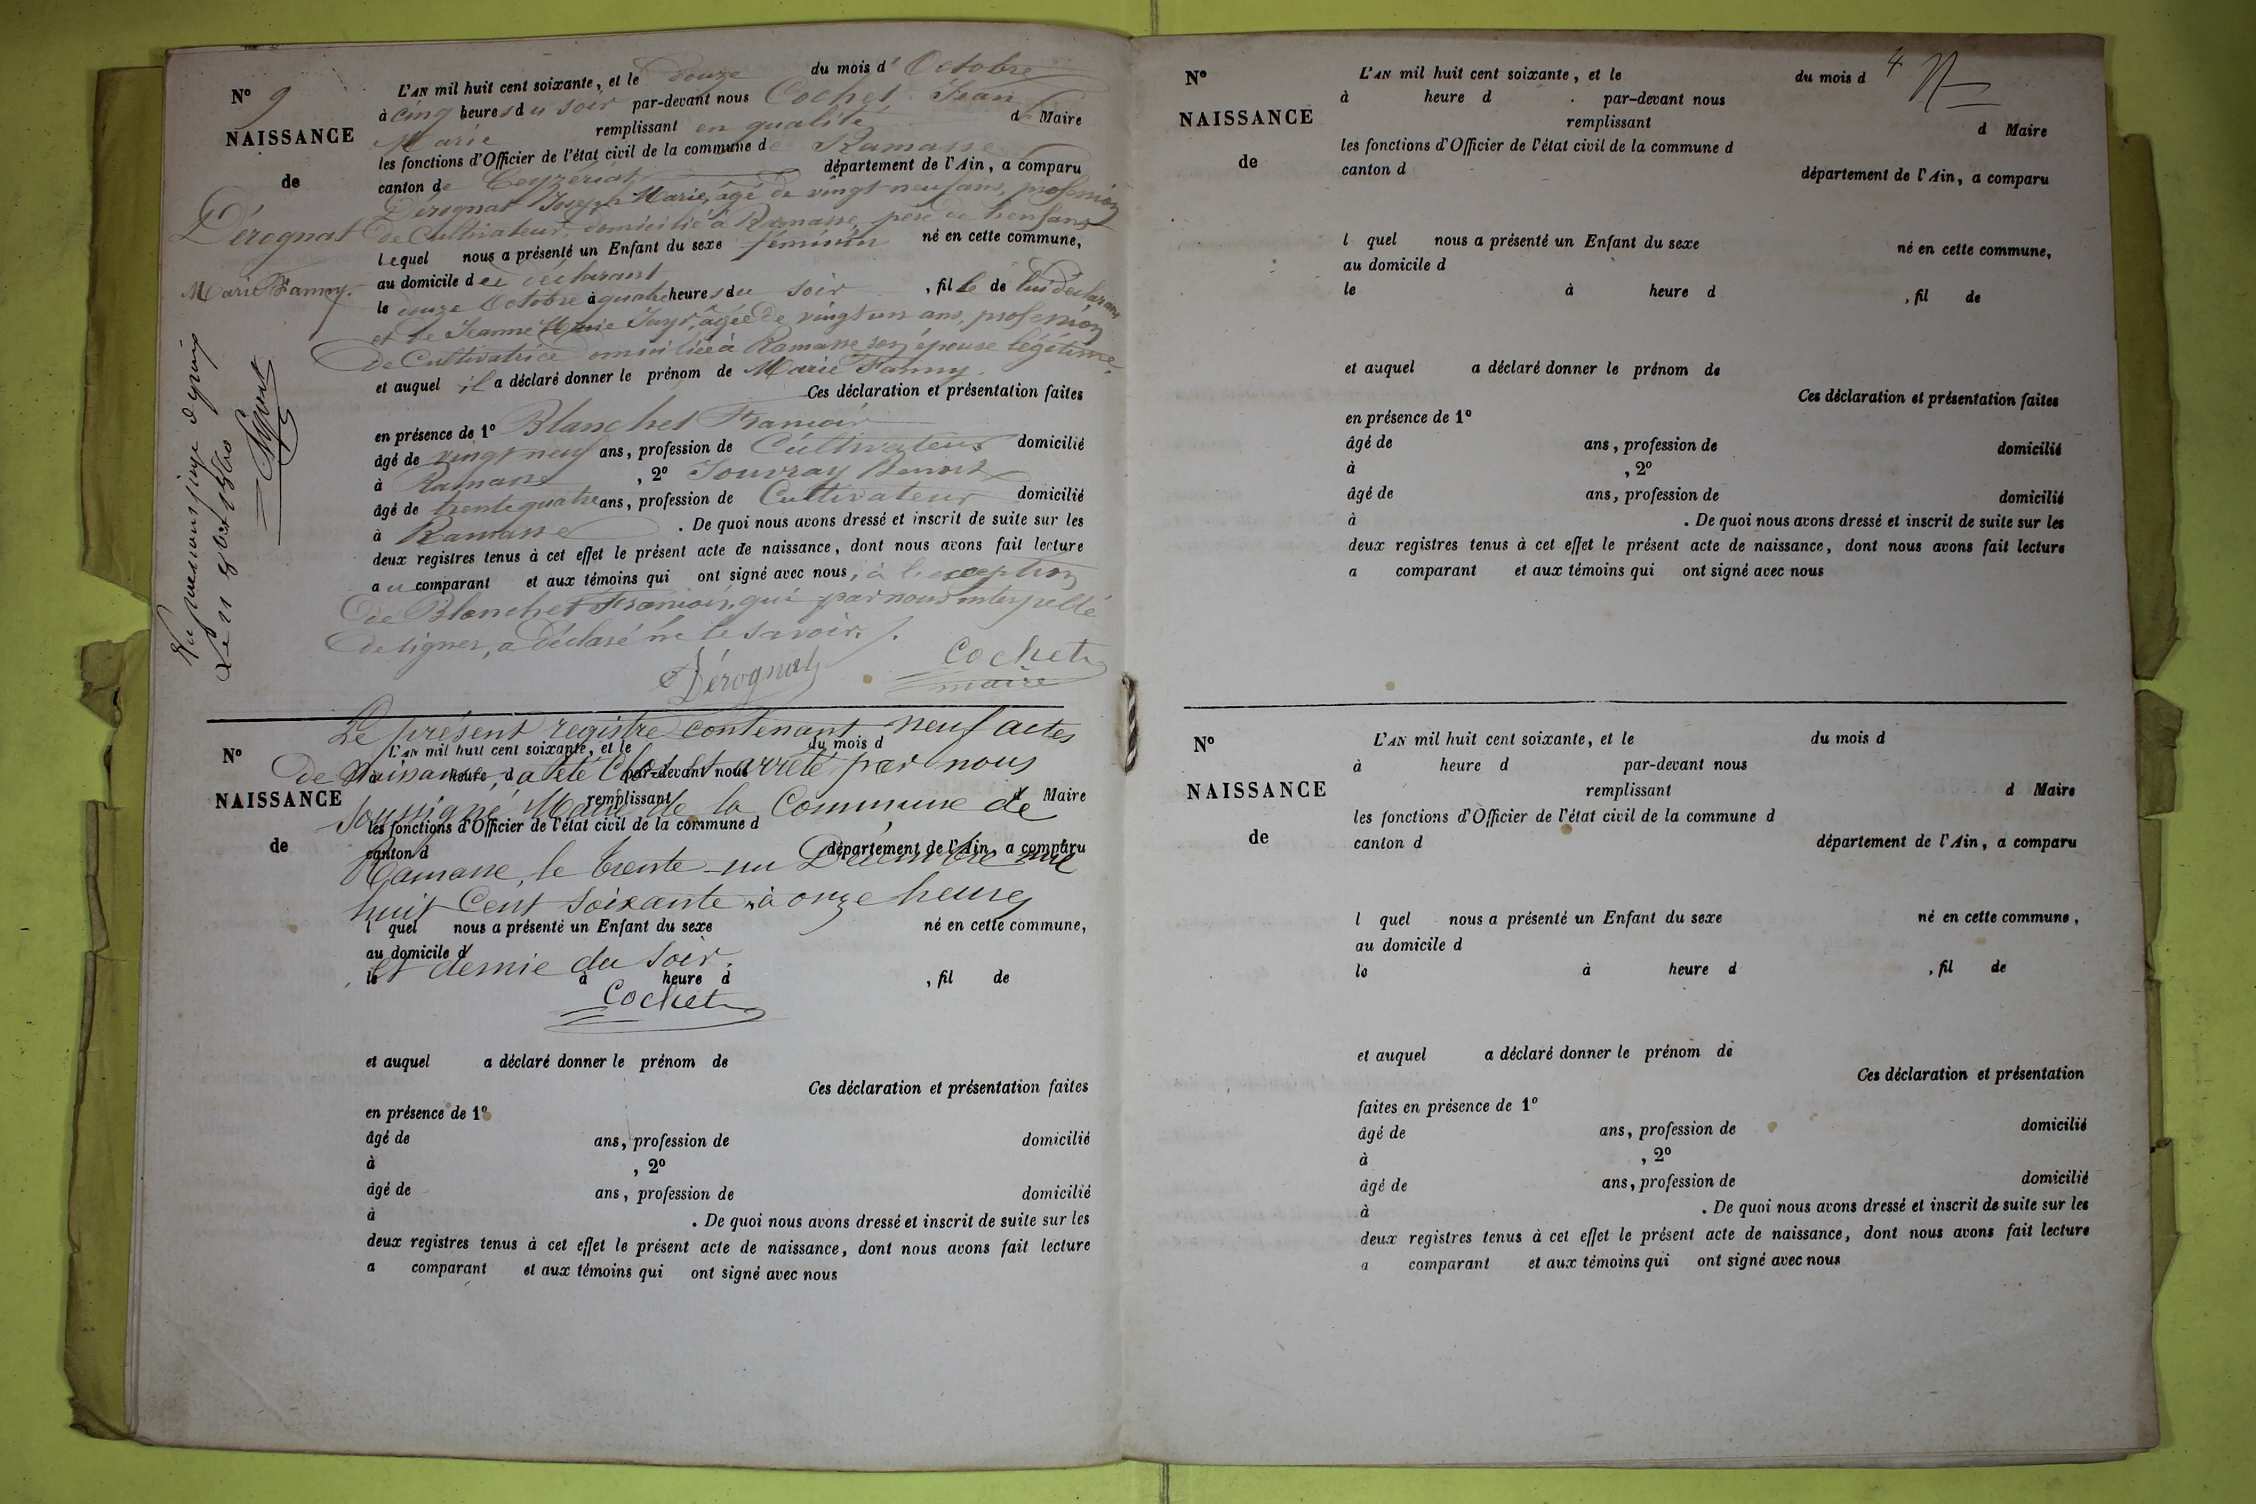 N° 9
NAISSANCE
de
Dérognat
Marie Fanny.
L'AN mil huit cent soixante, et le douze du mois d'Octobre
à cinq heures du soir par-devant nous Cochet Jean
Marie remplissant en qualité d Maire
les fonctions d'Officier de l'état civil de la commune de Ramasse
canton de Ceyzériat département de l'Ain, a comparu
Dérognat Joseph Marie, âgé de vingt neuf ans, profession
de Cultivateur, domicilié à Ramasse, père de l'enfant
lequel nous a présenté un Enfant du sexe féminin né en cette commune,
au domicile du déclarant
le douze Octobre à quatre heures du soir, fille de lui déclarant
et de Jeanne Marie âgée de vingt un ans, profession
de Cultivatrice domiciliée à Ramasse son épouse légitime.
et auquel il a déclaré donner le prénom de Marie Fanny.
Ces déclaration et présentation faites
en présence de 1° Blanchet
âgé de vingt neuf ans, profession de Cultivateur domicilié
à Ramasse, 2° Benoit
âgé de trente quatre ans, profession de Cultivateur domicilié
à Ramasse. De quoi nous avons dressé et inscrit de suite sur les
deux registres tenus à cet effet le présent acte de naissance, dont nous avons fait lecture
au comparant et aux témoins qui ont signé avec nous, à l'exception
de Blanchet qui par nous interpellé
de signer, a déclaré ne le savoir.
Dérognat
Cochet
maire
Le présent registre contenant neuf actes
de Naissance, a été clos et arrêté par nous
soussigné Maire de la Commune de
Ramasse, le trente-un Décembre mil
huit Cent soixante à onze heures
et demie du soir.
Cochet
N°
NAISSANCE
de
L'AN mil huit cent soixante, et le du mois d
à heure d par-devant nous
remplissant d Maire
les fonctions d'Officier de l'état civil de la commune d
canton d département de l'Ain, a comparu
l quel nous a présenté un Enfant du sexe né en cette commune,
au domicile d
le à heure d , fil de
et auquel a déclaré donner le prénom de
Ces déclaration et présentation faites
en présence de 1°
âgé de ans, profession de domicilié
à , 2°
âgé de ans, profession de domicilié
à . De quoi nous avons dressé et inscrit de suite sur les
deux registres tenus à cet effet le présent acte de naissance, dont nous avons fait lecture
a comparant et aux témoins qui ont signé avec nous
4
N°
NAISSANCE
de
L'AN mil huit cent soixante, et le du mois d
à heure d par-devant nous
remplissant d Maire
les fonctions d'Officier de l'état civil de la commune d
canton d département de l'Ain, a comparu
l quel nous a présenté un Enfant du sexe né en cette commune,
au domicile d
le à heure d , fil de
et auquel a déclaré donner le prénom de
Ces déclaration et présentation faites
en présence de 1°
âgé de ans, profession de domicilié
à , 2°
âgé de ans, profession de domicilié
à . De quoi nous avons dressé et inscrit de suite sur les
deux registres tenus à cet effet le présent acte de naissance, dont nous avons fait lecture
a comparant et aux témoins qui ont signé avec nous
N°
NAISSANCE
de
L'AN mil huit cent soixante, et le du mois d
à heure d par-devant nous
remplissant d Maire
les fonctions d'Officier de l'état civil de la commune d
canton d département de l'Ain, a comparu
l quel nous a présenté un Enfant du sexe né en cette commune,
au domicile d
le à heure d , fil de
et auquel a déclaré donner le prénom de
Ces déclaration et présentation
faites en présence de 1°
âgé de ans, profession de domicilié
à , 2°
âgé de ans, profession de domicilié
à . De quoi nous avons dressé et inscrit de suite sur les
deux registres tenus à cet effet le présent acte de naissance, dont nous avons fait lecture
a comparant et aux témoins qui ont signé avec nous